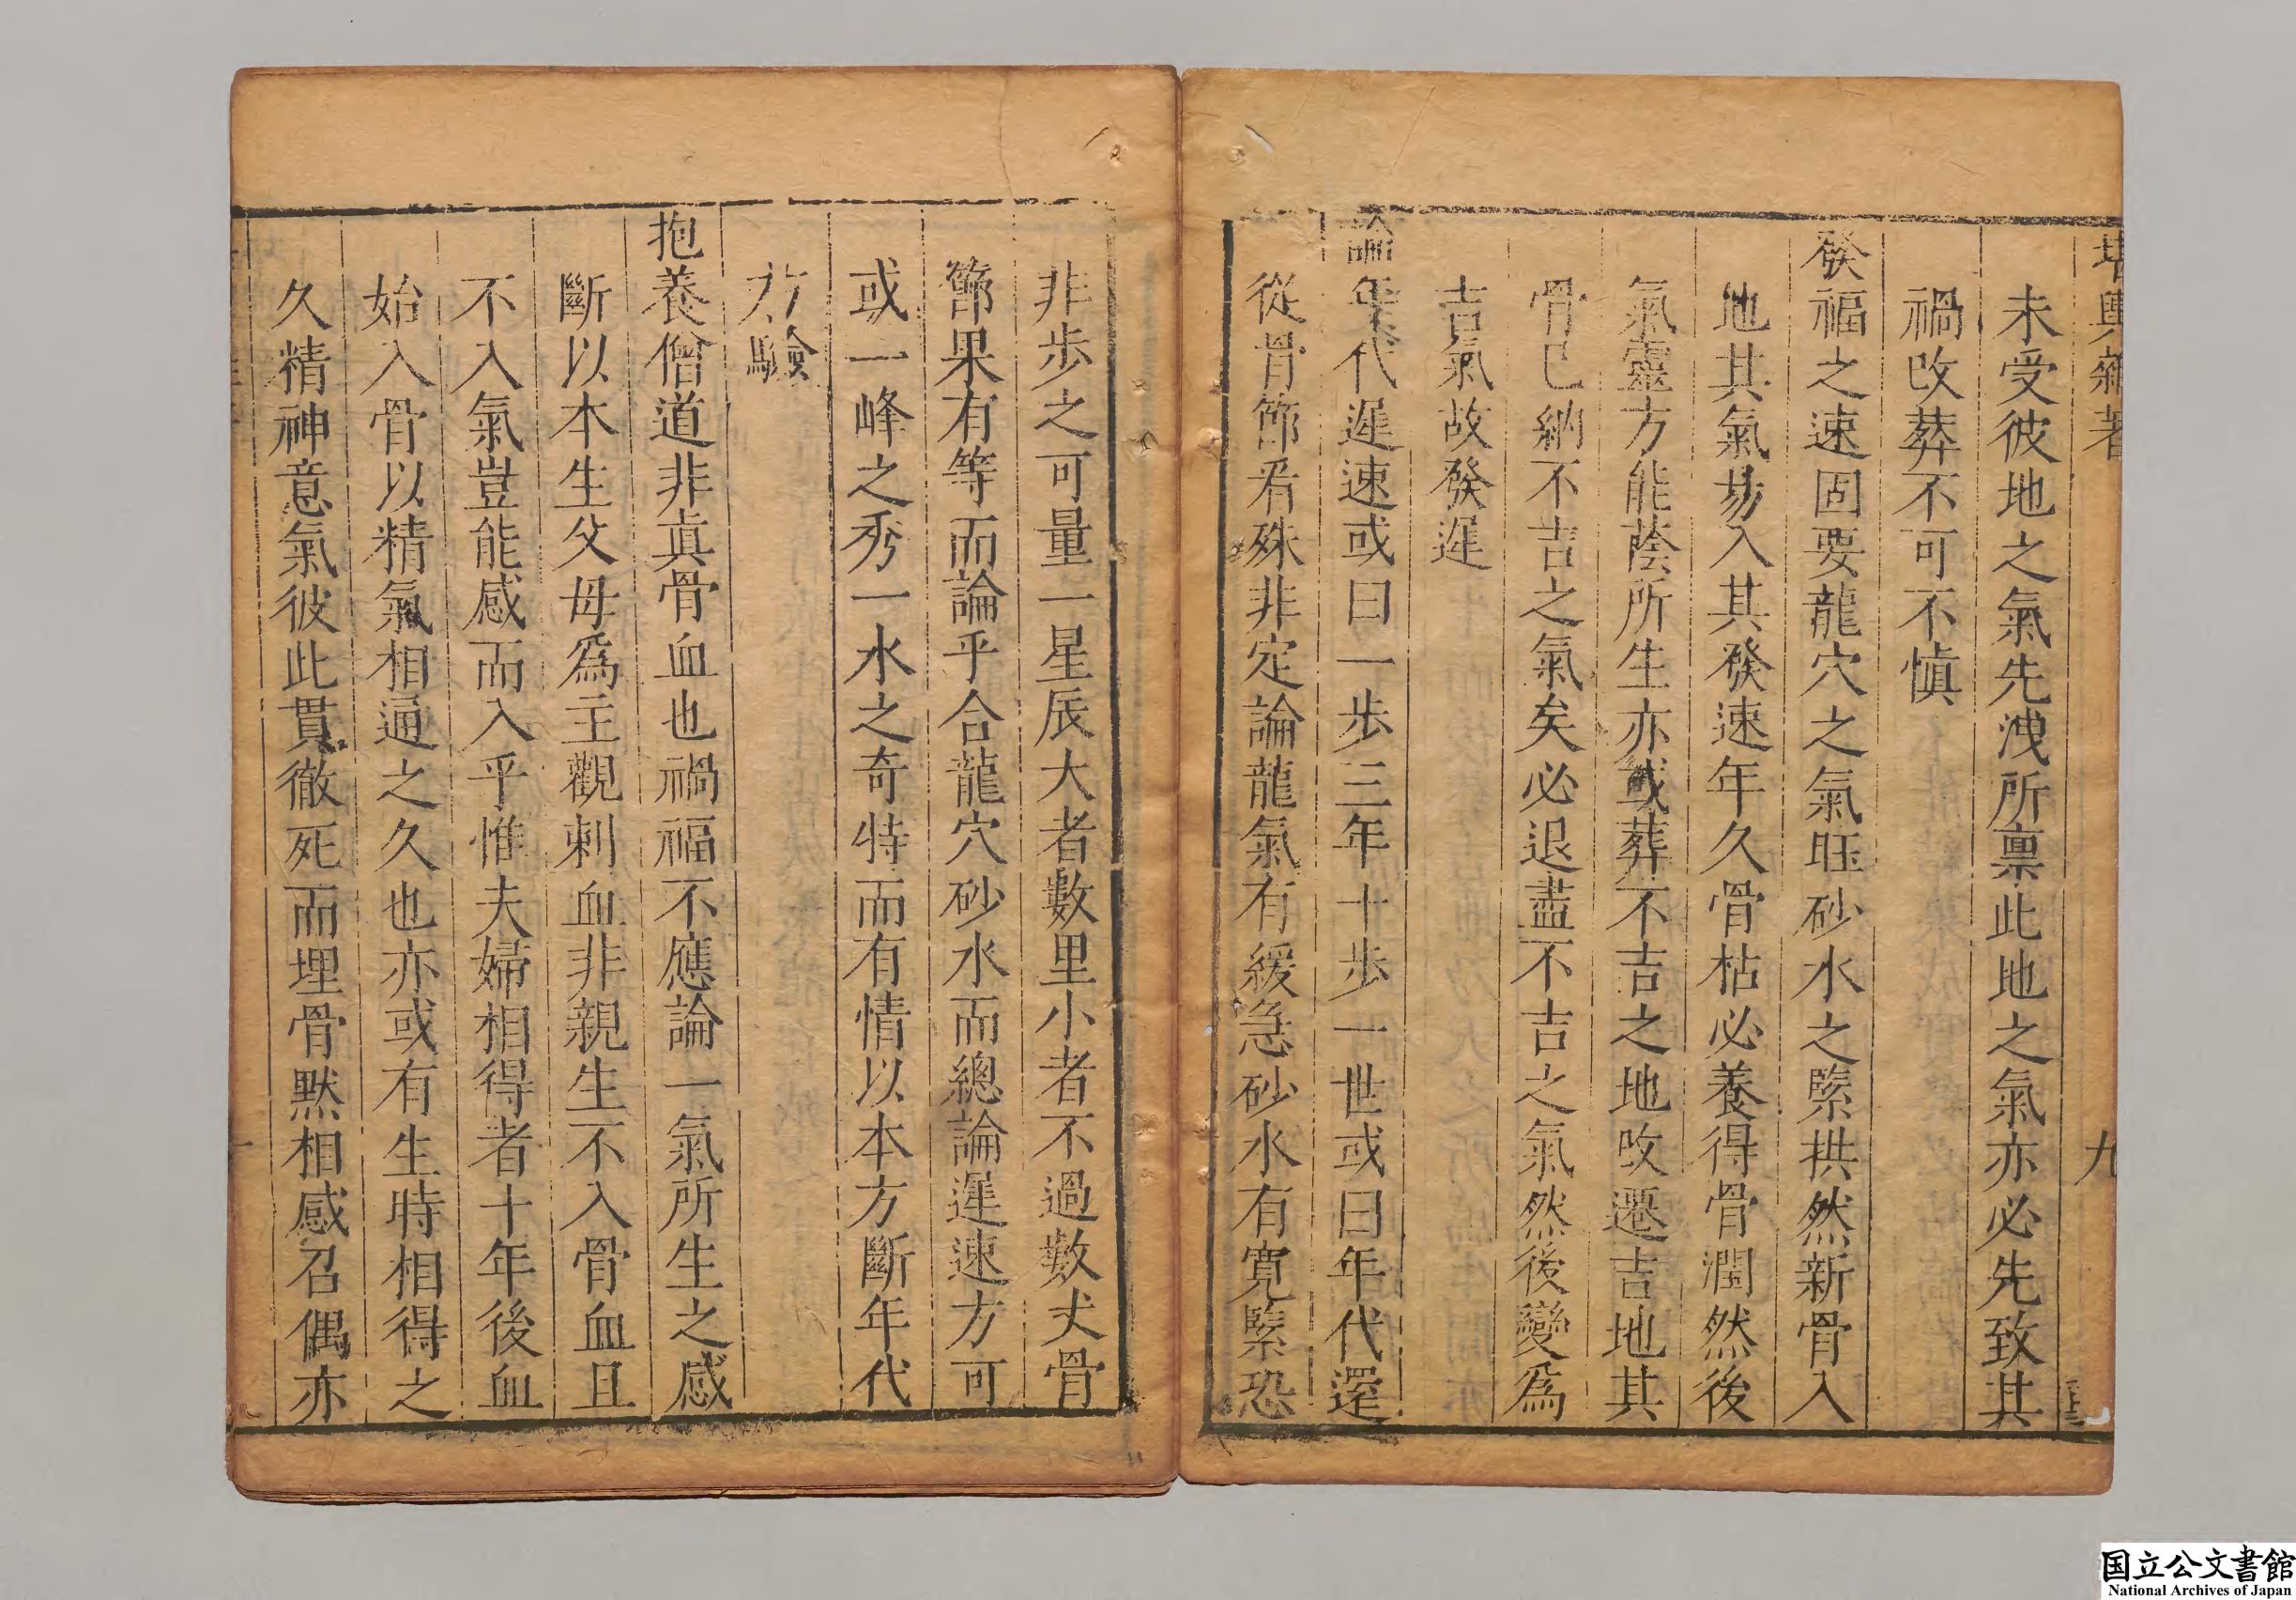 堪輿雜著
九
未受彼地之氣先洩所禀此地之氣亦必先致其
禍改葬不可不愼
發福之速固要龍穴之氣旺砂水之緊拱然新骨入
地其氣昜入其發速年久骨枯必養得骨潤然後
氣靈方能蔭所生亦或葬不吉之地改遷吉地其
骨已納不吉之氣矣必退盡不吉之氣然後變爲
吉氣故發遲
論年代遲速或曰一步三年十步一世或曰年代還
從骨節看殊非定論龍氣有緩急砂水有寬緊恐
非步之可量一星辰大者數里小者不過數丈骨
節果有等而論乎合龍穴砂水而總論遲速方可
或一峰之秀一水之奇特而有情以本方斷年代
方驗
抱養僧道非眞骨血也禍福不應論一氣所生之感
斷以本生父母爲主觀刺血非親生不入骨血且
不入氣豈能感而入乎惟夫婦相得者十年後血
始入骨以精氣相通之久也亦或有生時相得之
久精神意氣彼此貫徹死而埋骨黙相感召偶亦
国立公文書館
National Archives of Japan